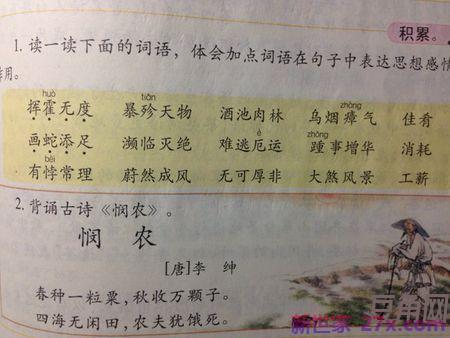 积累。
1. 读一读下面的词语，体会加点词语在句子中表达思想感情
作用。
huò tiǎn zhàng
挥霍无度 暴殄天物 酒池肉林 乌烟瘴气 佳肴
è zhǒng
画蛇添足 濒临灭绝 难逃厄运 踵事增华 消耗
bèi
有悖常理 蔚然成风 无可厚非 大煞风景 工薪
2. 背诵古诗《悯农》。
悯 农
[唐]李 绅
春种一粒粟，秋收万颗子。
四海无闲田，农夫犹饿死。
豆角网
新世家 27x.com